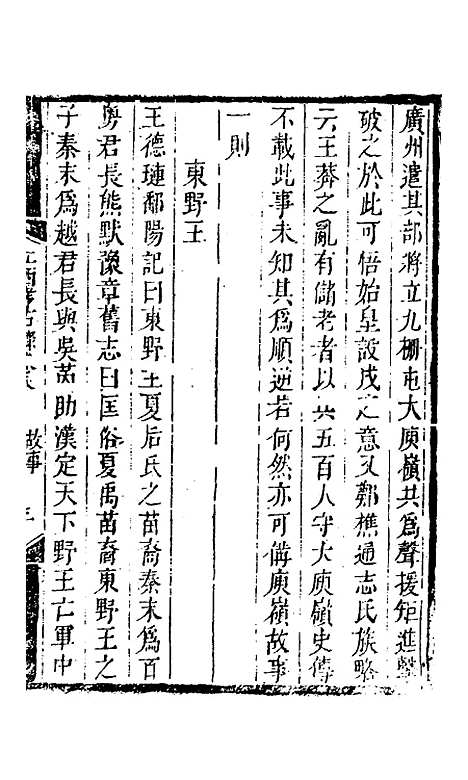 廣州遣其部將立九柵屯大庾嶺共爲聲援矩進擊
破之於此可悟始皇設戍之意又鄭樵通志氏族略
云王莽之亂有儲老者以兵五百人守大庾嶺史傳
不載此事未知其爲順逆若何然亦可備庾嶺故事
一則
東野王
王德璉鄱陽記曰東野王夏后氏之苗裔秦末爲百
粵君長熊默豫章舊志曰匡俗夏禹苗裔東野王之
子秦末爲越君長與吳芮助漢定天下野王亡軍中
江西考古錄 卷八 故事 三